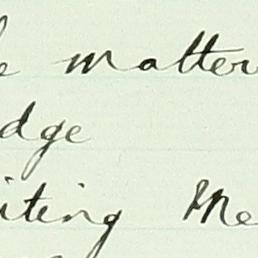 e matter
dge
iting Me